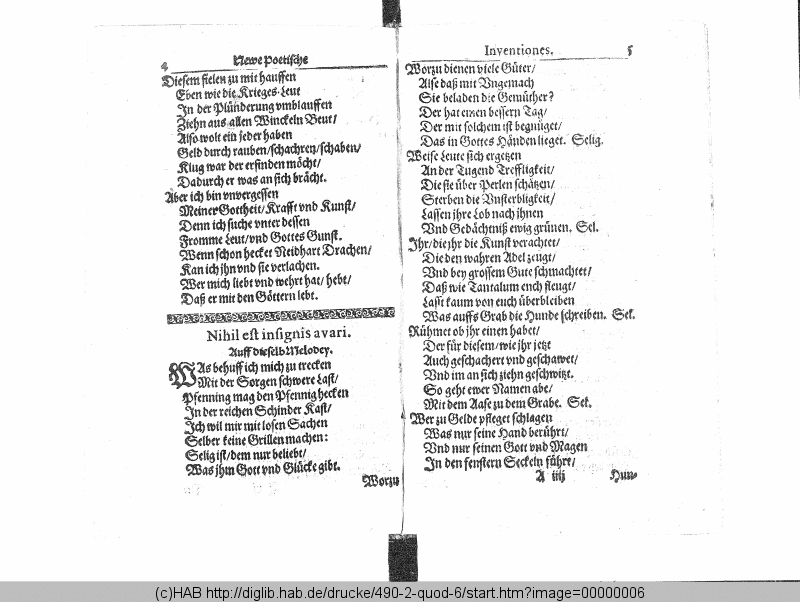 4
Newe Poetische
Diesem fielen zu mit hauffen
Eben wie die Krieges-Leut
In der Plünderung vmblauffen
Ziehn aus allen Winckeln Beut/
Also wolt ein jeder haben
Geld durch rauben/schachren/schaben/
Klug war der erfinden möcht/
Dadurch er was an sich brächt.
Aber ich bin vnvergessen
Meiner Gottheit/Krafft vnd Kunst/
Denn ich suche vnter dessen
Fromme Leut/vnd Gottes Gunst.
Wenn schon hecket Neidhart Drachen/
Kan ich ihn vnd sie verlachen.
Wer mich liebt vnd wehrt hat/hebt/
Daß er mit den Göttern lebt.
Nihil est insignis avari.
Auff dieselb Melodey.
WAs behuff ich mich zu trecken
Mit der Sorgen schwere Last/
Pfenning mag den Pfennig hecken
In der reichen Schinder Kast/
Ich wil mir mit losen Sachen
Selber keine Grillen machen:
Selig ist/dem nur beliebt/
Was jhm Gott vnd Glücke gibt.
Worzu
Inventiones.
5
Worzu dienen viele Güter/
Alse daß mit Vngemach
Sie beladen die Gemüther?
Der hat einen bessern Tag/
Der mit solchem ist begnüget/
Das in Gottes Händen lieget. Selig.
Weise Leute sich ergetzen
An der Tugend Treffligkeit/
Die sie über Perlen schätzen/
Sterben die Vnsterbligkeit/
Lassen jhre Lob nach jhnen
Vnd Gedächtniß ewig grünen. Sel.
Ihr/die jhr die Kunst verachtet/
Die den wahren Adel zeugt/
Vnd bey grossem Gute schmachtet/
Daß wie Tantalum euch fleugt/
Lasst kaum von euch überbleiben
Was auffs Grab die Hunde schreiben. Sel.
Rühmet ob jhr einen habet/
Der für diesem/wie jhr jetzt
Auch geschachert vnd geschawet/
Vnd im an sich ziehn geschwitzt.
So geht ewer Namen abe/
Mit dem Aase zu dem Grabe. Sel.
Wer zu Gelde pfleget schlagen
Was nur seine Hand berührt/
Vnd nur seinen Gott vnd Magen
In den fenstern Seckeln führt/
A iiij
Hun-
(c)HAB http://diglib.hab.de/drucke/490-2-quod-6/start.htm?image=00000006